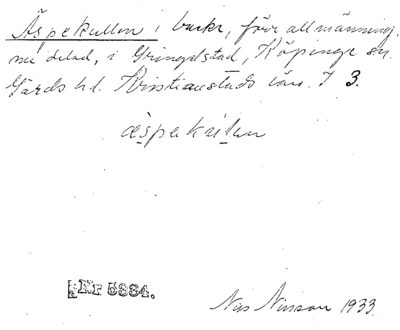 Äspekullen i backe, förr allmänning,
nu delad, i Gringelstad, Köpinge sn.
Gärds hd. Kristianstads län. I 3.
äspekulen
Nr 5884.
Nils Nilsson 1933.